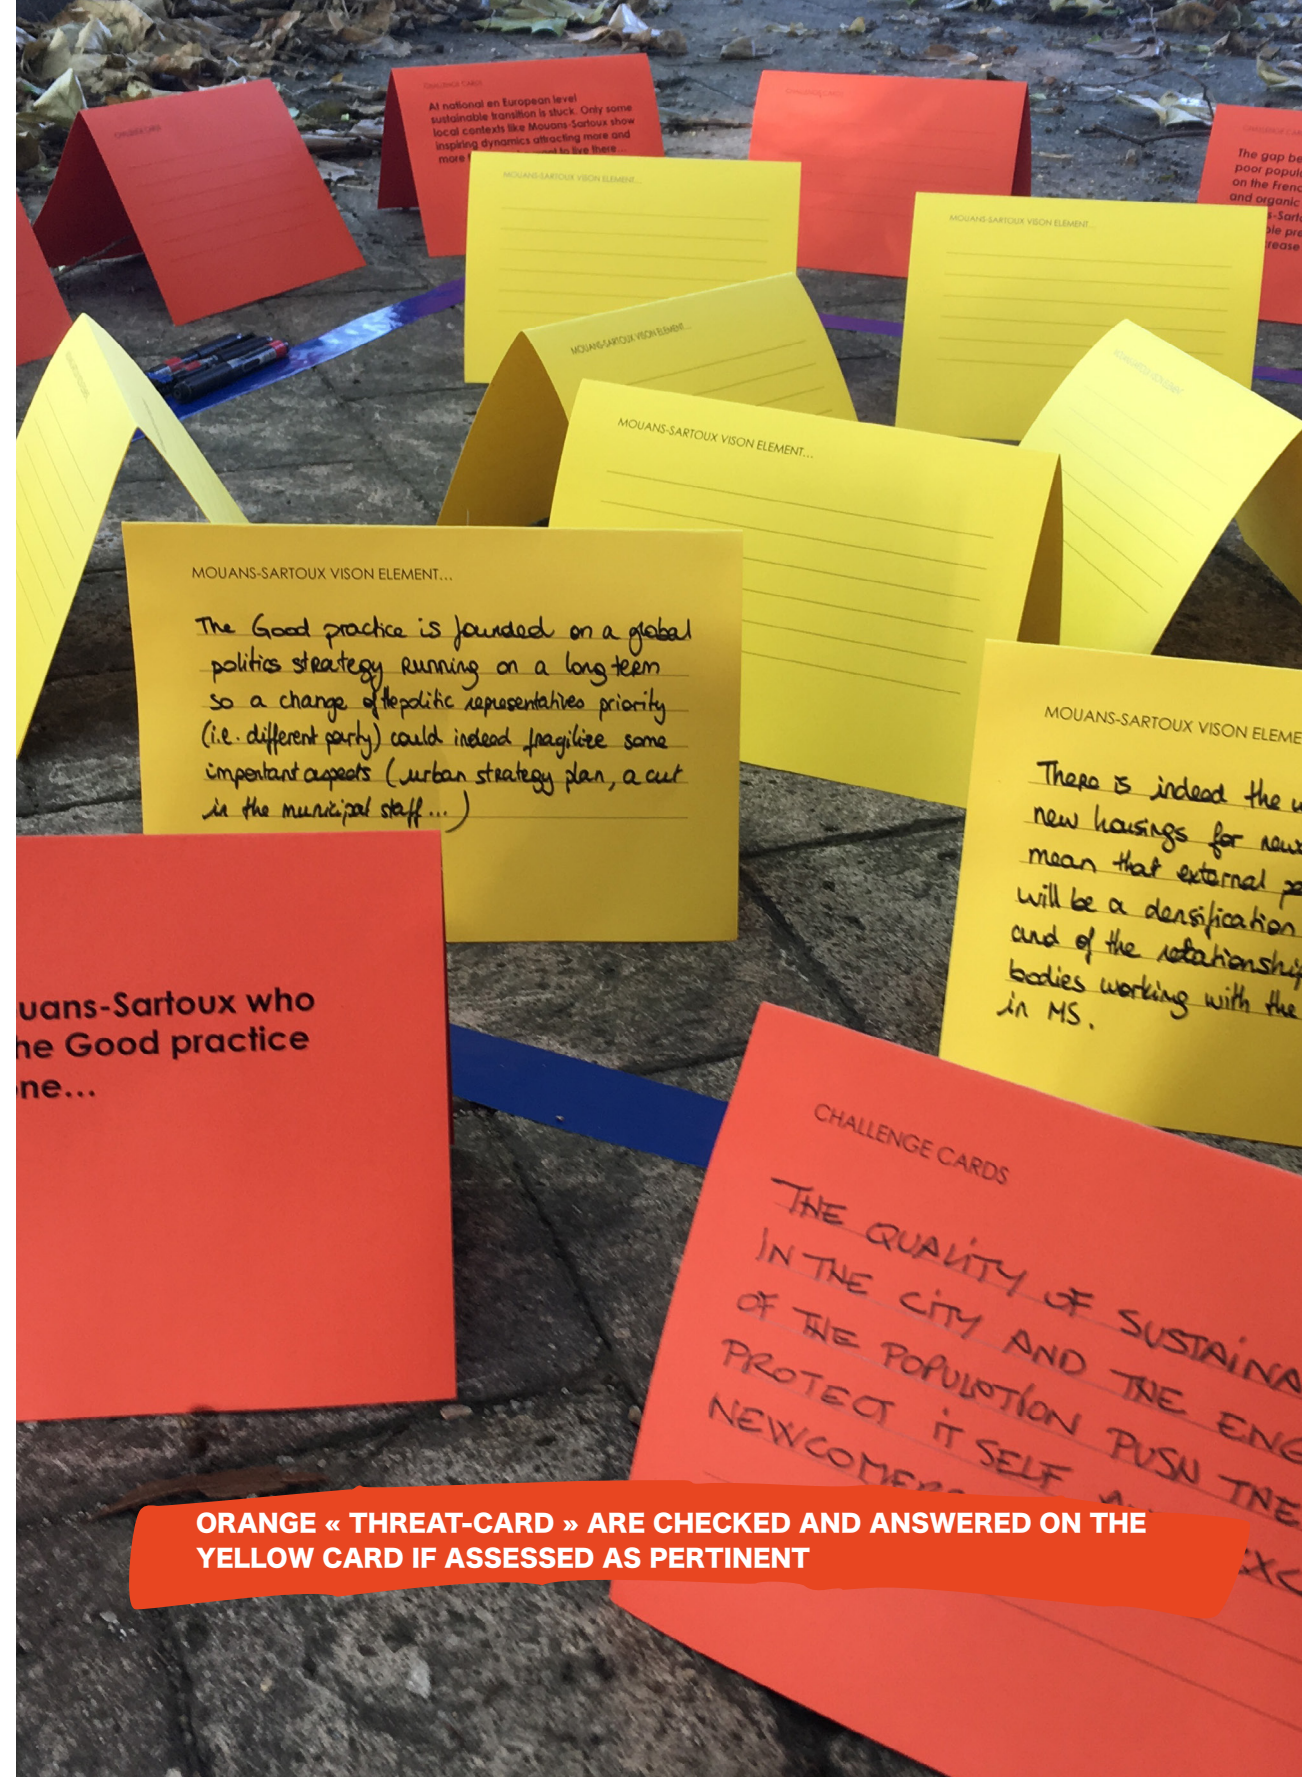 CHALLENGE CARDS
CHALLENGE CARDS
At national en European level
sustainable transition is stuck. Only some
local contexts like Mouans-Sartoux show
inspiring dynamics attracting more and
more to live there...
CHALLENGE CARDS
CHALLENGE CAR
The gap be
poor popula
on the Frenc
and organic
s-Sarto
ple pre
crease
MOUANS-SARTOUX VISON ELEMENT...
MOUANS-SARTOUX VISON ELEMENT...
MOUANS-SARTOUX VISON ELEMENT...
MOUANS-SARTOUX VISON ELEMENT...
MOUANS-SARTOUX VISON ELEMENT...
The Good practice is founded on a global
politics strategy running on a long term
so a change of the politic representatives priority
(i.e. different party) could indeed fragilize some
important aspects (urban strategy plan, a cut
in the municipal staff...)
MOUANS-SARTOUX VISON ELEME
There is indeed the
new housings for new
mean that external pe
will be a densification
and of the relationship
bodies working with the
in MS.
uans-Sartoux who
he Good practice
ne...
CHALLENGE CARDS
THE QUALITY OF SUSTAINA
IN THE CITY AND THE ENG
OF THE POPULATION PUSH THE
PROTECT IT SELF
NEWCOMERS
EXC
ORANGE « THREAT-CARD » ARE CHECKED AND ANSWERED ON THE
YELLOW CARD IF ASSESSED AS PERTINENT